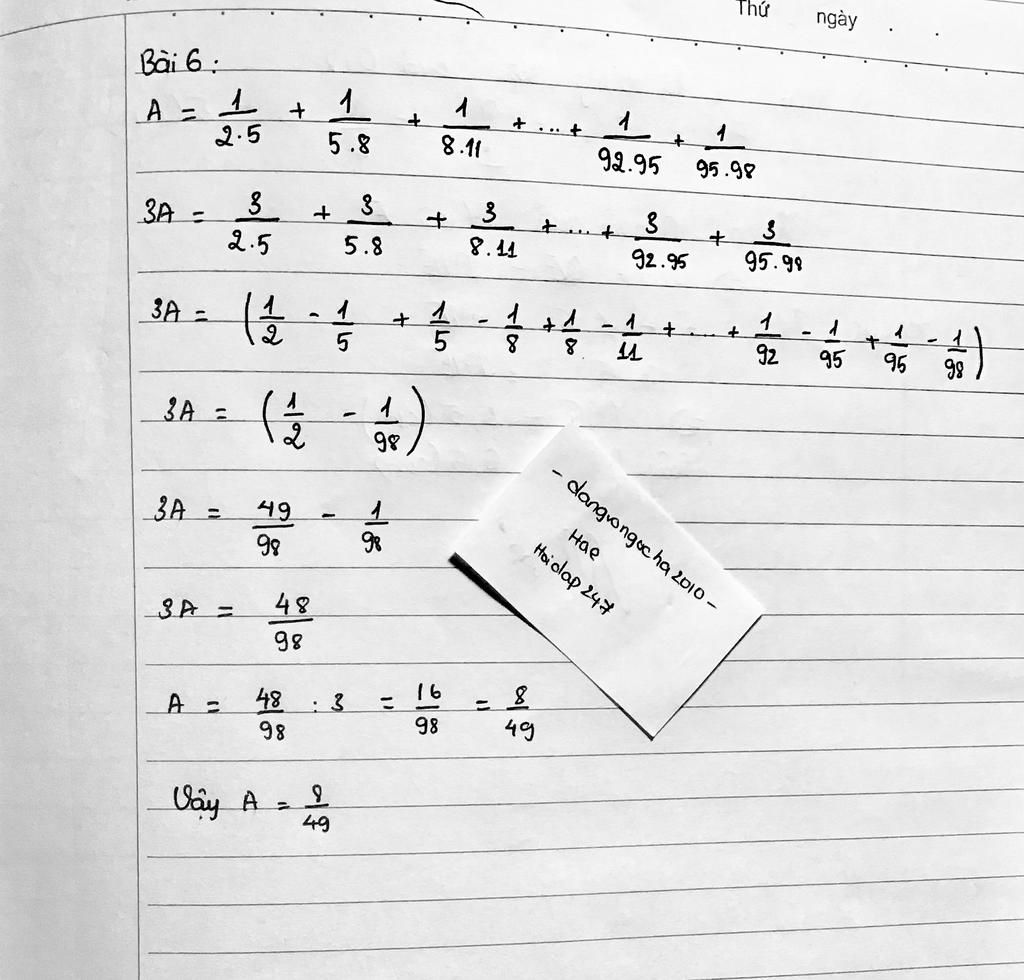 Thứ ngày . .
Bài 6 :
A = 1/2.5 + 1/5.8 + 1/8.11 + ... + 1/92.95 + 1/95.98
3A = 3/2.5 + 3/5.8 + 3/8.11 + ... + 3/92.95 + 3/95.98
3A = (1/2 - 1/5 + 1/5 - 1/8 + 1/8 - 1/11 + ... + 1/92 - 1/95 + 1/95 - 1/98)
3A = (1/2 - 1/98)
3A = 49/98 - 1/98
3A = 48/98
A = 48/98 : 3 = 16/98 = 8/49
Vậy A = 8/49
- dangvongocha2010 -
Hae
Hoidap247